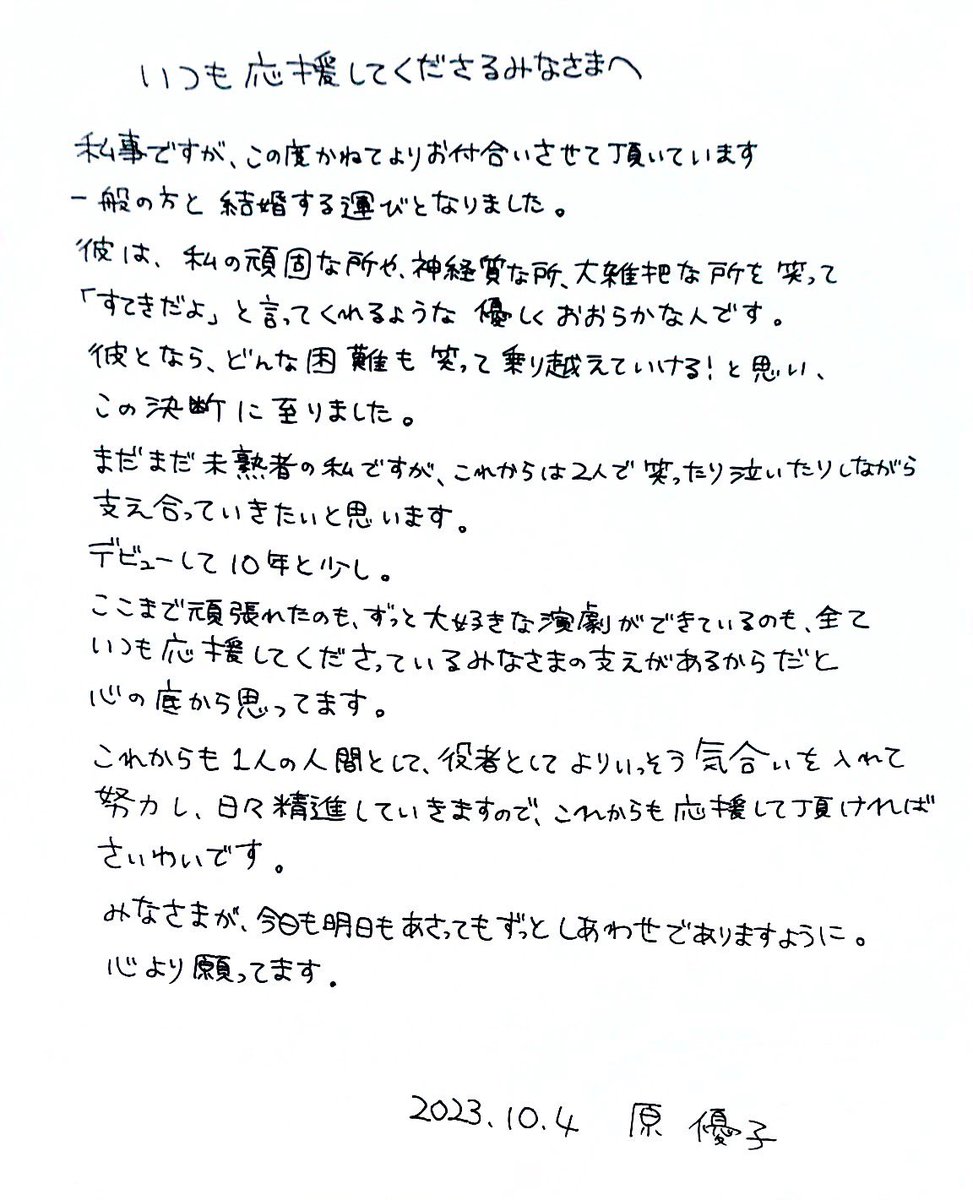 いつも応援してくださるみなさまへ
私事ですが、この度かねてよりお付合いさせて頂いています
一般の方と結婚する運びとなりました。
彼は、私の頑固な所や、神経質な所、大雑把な所を笑って
「すてきだよ」と言ってくれるような優しくおおらかな人です。
彼となら、どんな困難も笑って乗り越えていける!と思い、
この決断に至りました。
まだまだ未熟者の私ですが、これからは2人で笑ったり泣いたりしながら
支え合っていきたいと思います。
デビューして10年と少し。
ここまで頑張れたのも、ずっと大好きな演劇ができているのも、全て
いつも応援してくださっているみなさまの支えがあるからだと
心の底から思ってます。
これからも1人の人間として、役者としてよりいっそう気合いを入れて
努力し、日々精進していきますので、これからも応援して頂ければ
さいわいです。
みなさまが、今日も明日もあさってもずっとしあわせでありますように。
心より願ってます.
2023.10.4 原 優子